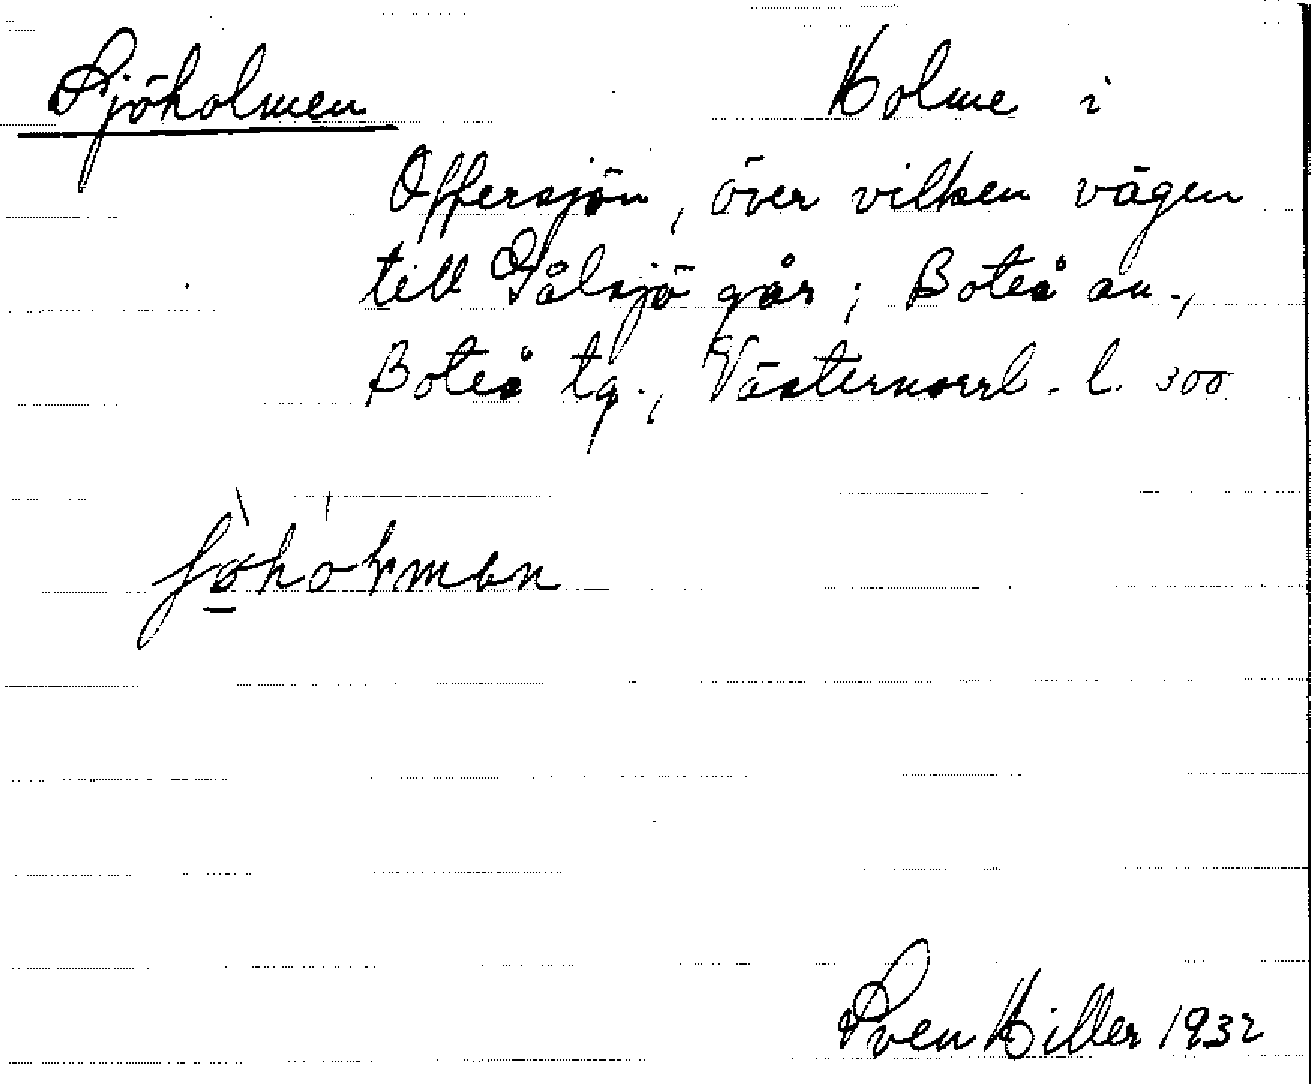 Sjöholmen Holme i
Offersjön, över vilken vägen
till Gålsjö går; Boteå sn.,
Boteå tg., Västernorrl. l.
Sven Hiller 1932